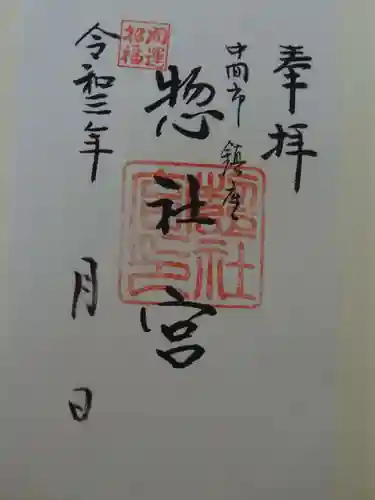 奉拝
中間市
鎮座
惣社宮
惣社宮印
開運
招福
令和三年
月日